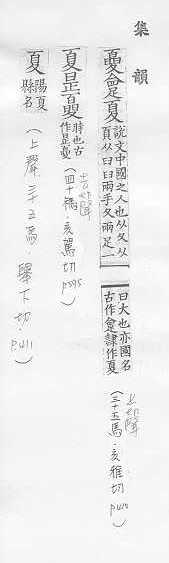 集韻
夏
說文中國之人也从夊从
頁从臼臼兩手夊兩足一
曰大也亦國名
古作隸作夏
(上聲 三十五馬.亥雅切 p410)
夏昰
時也古
作昰
(去聲 四十禡.亥駕切 p595)
夏
陽夏
縣名
(上聲 三十五馬.舉下切.p411)